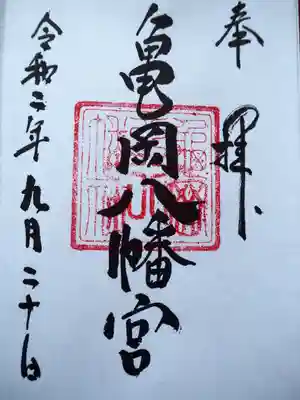 奉拝
亀岡八幡宮
令和二年九月二十日